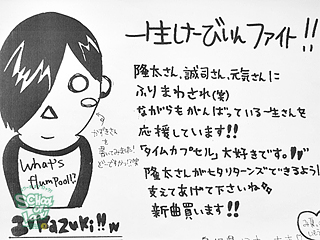 一生したーびぃんファイト!!
隆太さん、誠司さん、元気さんに
ふりまわされ(笑)
ながらもがんばっている一生さんを
応援しています!!
「タイムカプセル」大好きです。
隆太さんがヒタリターンズできるよう
支えてあげて下さいね
新曲買います!!
かずきさん
を
書いてみました!
What's
flumpool!?
Kazuki!!w